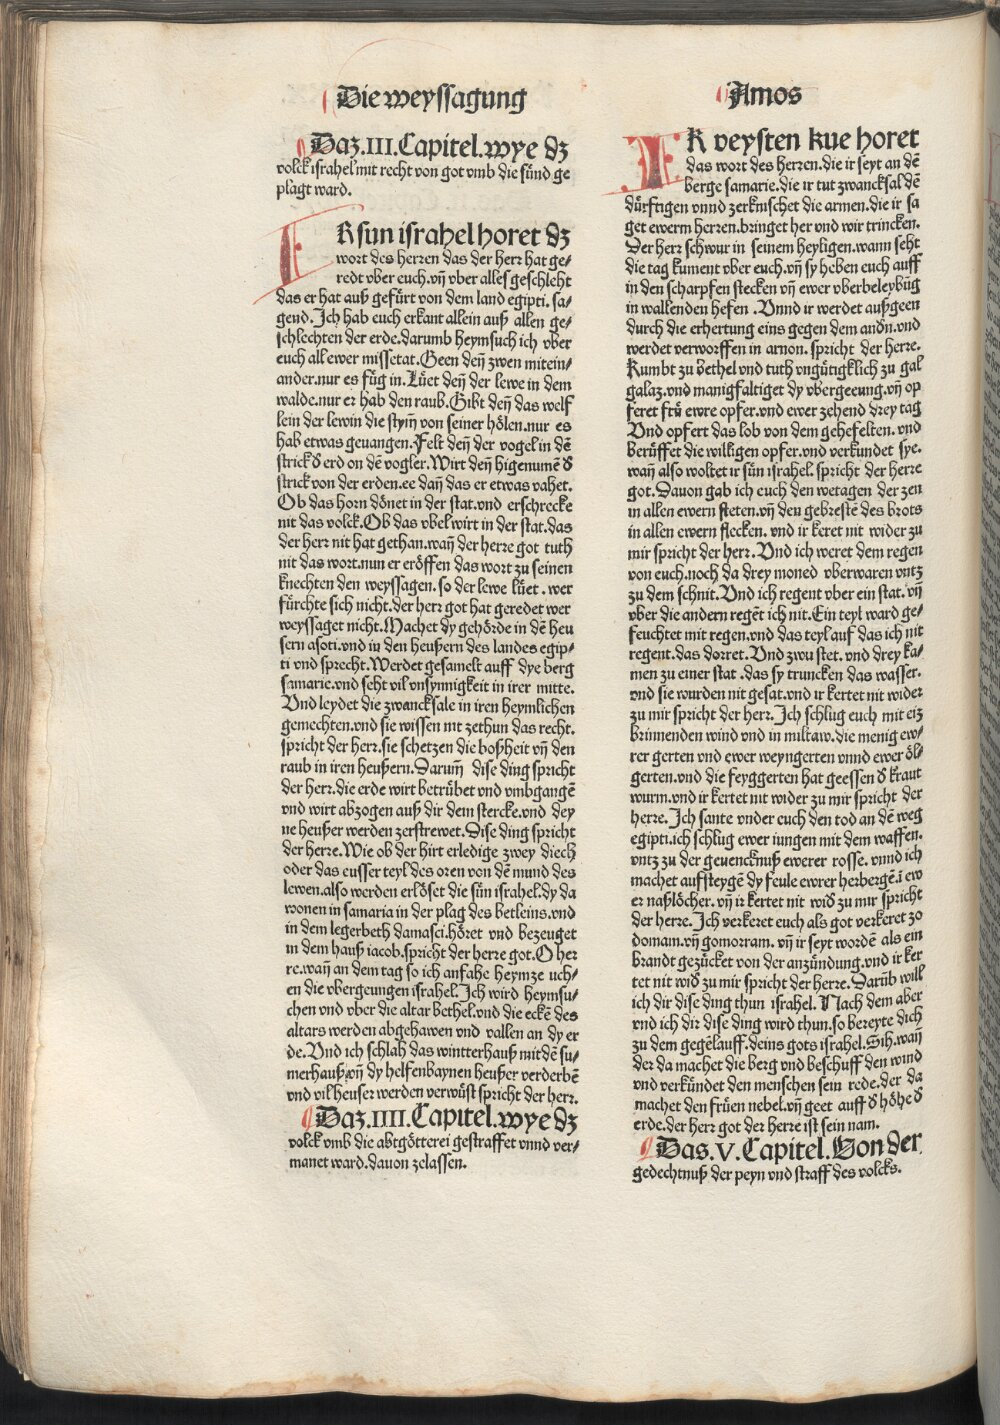 Die weyssagung
Amos
Daz.III.Capitel.wye dz
volck israhel mit recht von got vmb die sünd ge
plagt ward.
IR sun israhel horet dz
wort des herren das der herr hat ge-
redt vber euch.vñ vber alles geschlecht
das er hat auß gefürt von dem land egipti.sa-
gend.Ich hab euch erkant allein auß allen ge-
schlechten der erde.darumb heymsuch ich vber
euch all ewer missetat.Geen deñ zwen mitein-
ander.nur es füg in.Lüet deñ der lewe in dem
walde.nur er hab den raub.Gibt deñ das welf
lein der lewin die stym̄ von seiner hölen.nur es
hab etwas geuangen.Felt deñ der vogel in dē
strick d̕ erd on dē vogler.Wirt deñ higenumē d̕
strick von der erden.ee dañ das er etwas vahet.
Ob das horn dönet in der stat.vnd erschrecke
nit das volck.Ob das vbel wirt in der stat.das
der herr nit hat gethan.wañ der herre got tuth
nit das wort.nun er eröffen das wort zu seinen
knechten den weyssagen.so der lewe lüet.wer
fürchte sich nicht.der herr got hat geredet wer
weyssaget nicht.Machet dy gehörde in dē heu
sern asoti.vnd in den heußern des landes egip-
ti vnd sprecht.Werdet gesamelt auff dye berg
samarie.vnd seht vil vnsynnigkeit in irer mitte.
Vnd leydet die zwancksale in iren heymlichen
gemechten.vnd sie wissen nit zethun das recht.
spricht der herr.sie schetzen die boßheit vñ den
raub in iren heußern.Darum̄ dise ding spricht
der herr.die erde wirt betrübet vnd vmbgangē
vnd wirt abzogen auß dir dem stercke.vnd dey
ne heußer werden zerstrewet.Dise ding spricht
der herre.Wie ob der hirt erledige zwey diech
oder das eusser teyl des oren von dē mund des
lewen.also werden erlöset die sün israhel.dy da
wonen in samaria in der plag des betleins.vnd
in dem legerbeth damasci.höret vnd bezeuget
in dem hauß iacob.spricht der herre got.O her
re.wañ an dem tag so ich anfahe heymze uch-
en die vbergeungen israhel.Ich wird heymsu-
chen vnd vber die altar bethel.vnd die eckē des
altars werden abgehawen vnd vallen an dy er
de.Vnd ich schlah das wintterhauß mit dē su-
merhauß.vñ dy helfenbaynen heußer verderbē
vnd vil heuser werden verwüst spricht der herr.
Daz.IIII.Capitel.wye dz
volck vmb die abtgötterei gestraffet vnnd ver-
manet ward.dauon zelassen.
IR veysten kue horet
das wort des herren.die ir seyt an dē
berge samarie.die ir tut zwancksal dē
dürftigen vnnd zerknischet die armen.die ir sa
get ewerm herren.bringet her vnd wir trincken.
Der herr schwur in seinem heyligen.wann seht
die tag kument vber euch.vñ sy heben euch auff
in den scharpfen stecken vñ ewer vberbeleybūg
in wallenden hefen.Vnnd ir werdet außgeen
durch die erhertung eins gegen dem andn̄.vnd
werdet verworffen in arnon.spricht der herre.
Kumbt zu bethel vnd tuth vngütigklich zu gal
galaz.vnd manigfaltiget dy vbergeeung.vñ op
feret frü ewre opfer.vnd ewer zehend drey tag
Vnd opfert das lob von dem gehefelten.vnd
berüffet die willigen opfer.vnd verkundet sye.
wañ also woltet ir sün israhel.spricht der herre
got.Dauon gab ich euch den wetagen der zen
in allen ewern steten.vñ den gebrestē des brots
in allen ewern flecken.vnd ir keret nit wider zu
mir spricht der herr.Vnd ich weret dem regen
von euch.noch da drey moned vberwaren vntz
zu dem schnit.Vnd ich regent vber ein stat.vñ
vber die andern regēt ich nit.Ein teyl ward ge-
feuchtet mit regen.vnd das teyl auf das ich nit
regent.das dorret.Vnd zwu stet.vnd drey ka-
men zu einer stat.das sy truncken das wasser.
vnd sie wurden nit gesat.vnd ir kertet nit wider
zu mir spricht der herr.Ich schlug euch mit eiz
brinnenden wind vnd in miltaw.die menig ew-
rer gerten vnd ewer weyngerten vnnd ewer öl-
gerten.vnd die feyggerten hat geessen d̕ kraut
wurm.vnd ir kertet nit wider zu mir spricht der
herre.Ich sante vnder euch den tod an dē weg
egipti.ich schlug ewer iungen mit dem waffen.
vntz zu der geuencknuß ewerer rosse.vnnd ich
machet aufsteygē dy feule ewrer herbergē.i ew
er naßlöcher.vñ ir kertet nit wid̕ zu mir spricht
der herre.Ich verkeret euch als got verkeret zo
domam.vñ gomorram.vñ ir seyt wordē als ein
brandt gezücket von der anzündung.vnd ir ker
tet nit wid̕ zu mir spricht der herre.Darūb will
ich dir dise ding thun israhel.Nach dem aber
vnd ich dir dise ding wird thun.so bereyte dich
zu dem gegēlauff.deins gots israhel.Sih.wañ
der da machet die berg vnd beschuff den wind
vnd verkündet den menschen sein rede.der da
machet den früen nebel.vñ geet auff d̕ höhe d̕
erde.der herr got der herre ist sein nam.
Das.V.Capitel.Von der
gedechtnuß der peyn vnd straff des volcks.